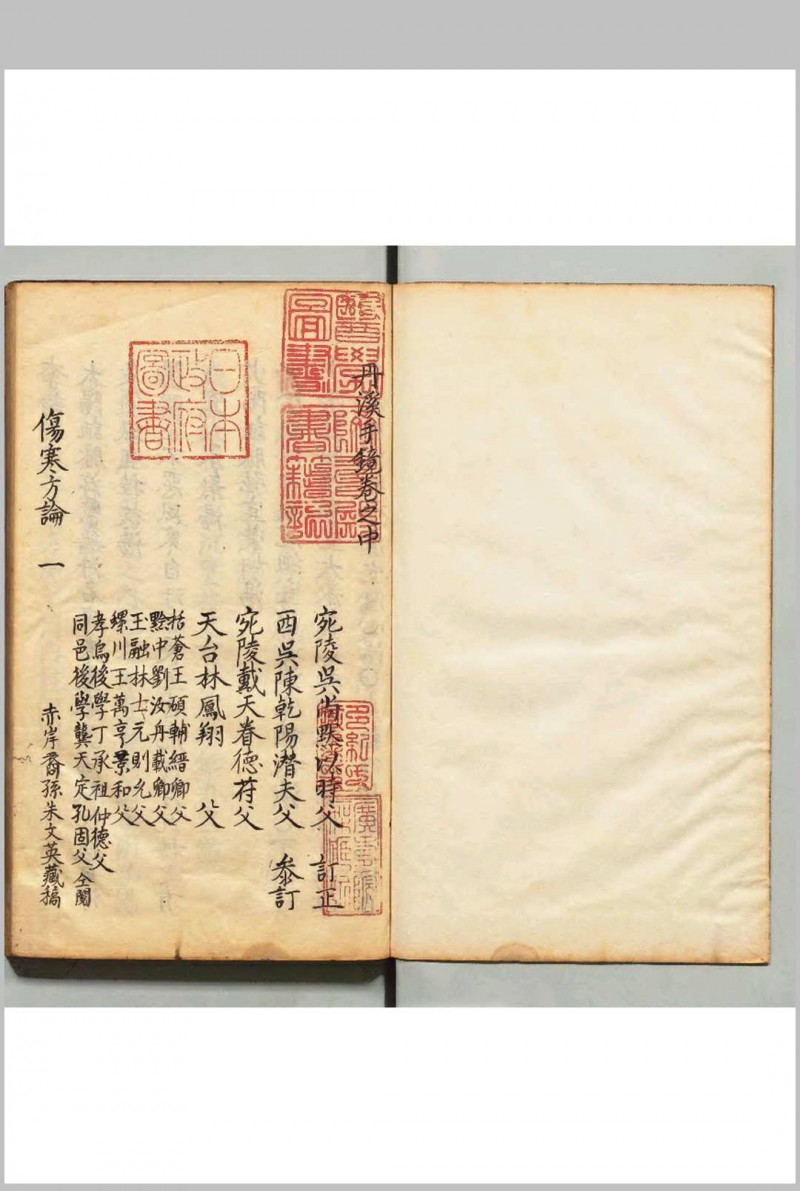 丹溪手鏡卷之中
宛陵吳尚默以時父 訂正
西吳陳乾陽潛夫父 叅訂
宛陵戴天眷德苻父
天台林鳳翔 父
括蒼王碩輔縉卿父
黔中劉汝舟載卿父
玉融林士元則允父
繹川王萬亨景和父
孝烏後學丁承祖仲德父
同邑後學龔天定孔固父 仝閱
赤岸裔孫朱文英藏稿
傷寒方論 一
日本
政府
圖書